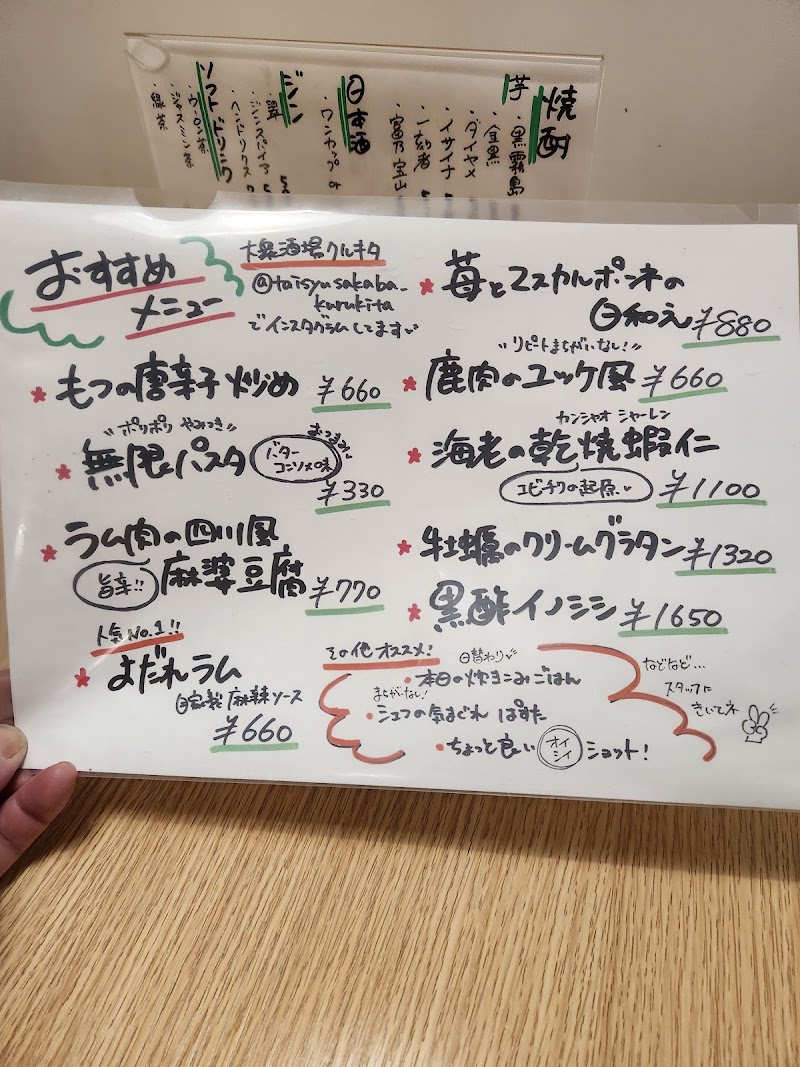 焼酎
芋
・黒霧島
・全黒
・ダイヤメ
・イサイナ
・一刻者
・富乃宝山
日本酒
・ワンカップ or
ジン
・翠
・ジンスパイア
・ヘンドリクス
ソフトドリンク
・ウーロン茶
・ジャスミン茶
・緑茶
おすすめ
メニュー
大衆酒場クルキタ
@taisyusakaba_
kurukita
でインスタグラムしてます
もつの唐辛子炒め ¥660
"ポリポリ やみつき"
無限パスタ
おつまみ
バター
コンソメ味
¥330
ラム肉の四川風
旨辛!!
麻婆豆腐 ¥770
人気No.1!!
よだれラム
自家製 麻辣ソース
¥660
苺とマスカルポーネの
白和え ¥880
"リピートまちがいなし!"
鹿肉のユッケ風 ¥660
カンシャオ シャーレン
海老の乾焼蝦仁
エビチリの起原 ¥1100
牡蠣のクリームグラタン ¥1320
黒酢イノシシ ¥1650
その他オススメ!
日替わり
・本日の炊きこみごはん
まちがいなし!
・シェフの気まぐれ ぱすた
・ちょっと良い オイシイ ショット!
などなど…
スタッフに
きいてネ